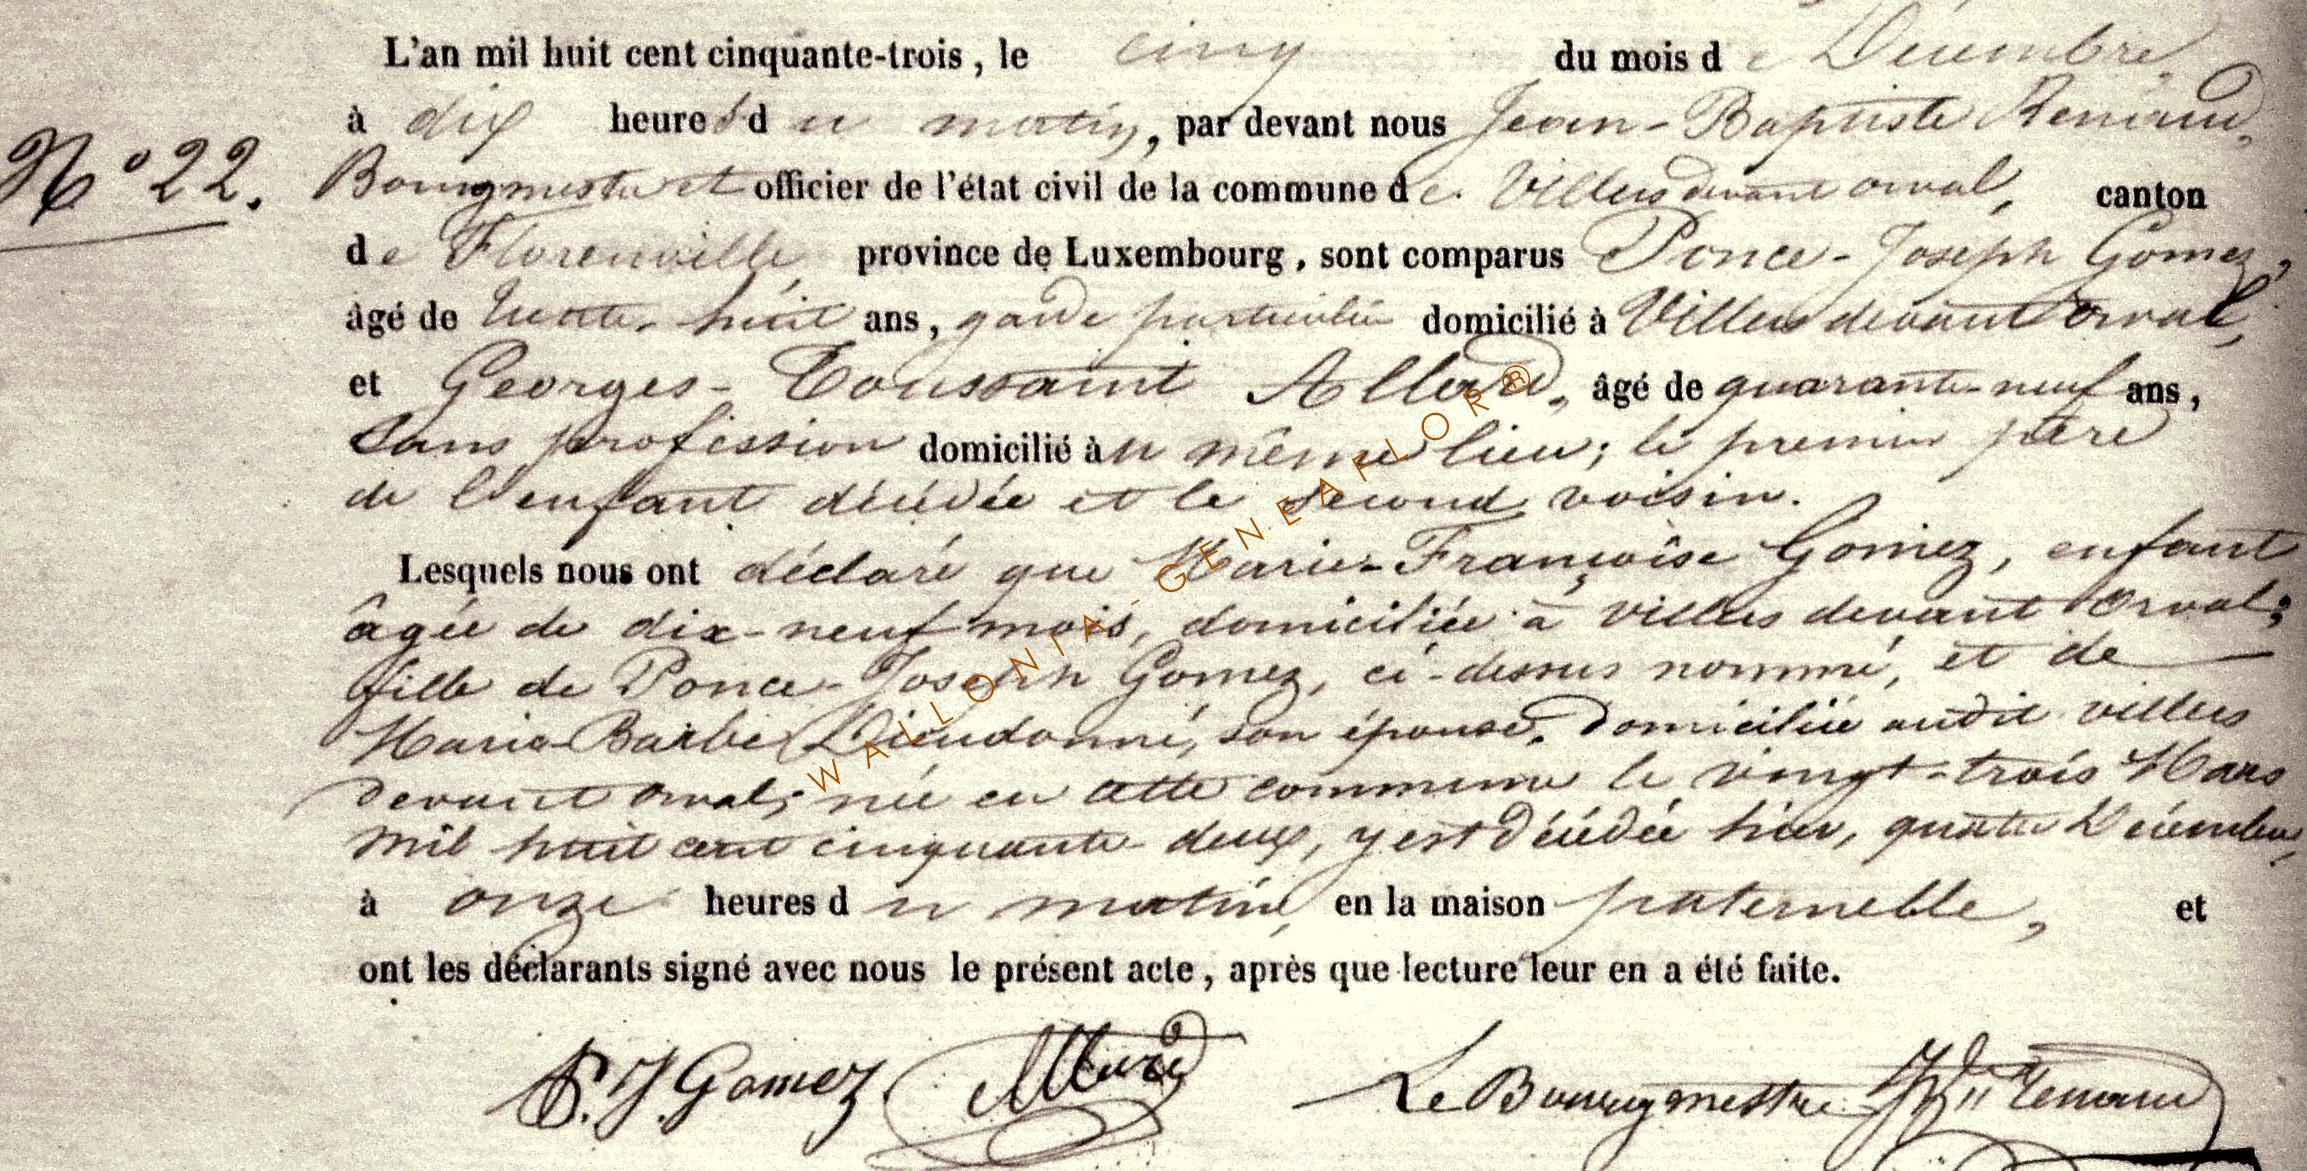 L'an mil huit cent cinquante-trois, le cinq du mois de Décembre,
à dix heures du matin, par devant nous Jean-Baptiste Renaud,
N° 22.
Bourgmestre et officier de l'état civil de la commune de Villers devant orval, canton
de Florenville, province de Luxembourg, sont comparus Ponce-Joseph Gomez,
âgé de trente-huit ans, garde particulier domicilié à Villers devant orval,
et Georges-Toussaint Allard, âgé de quarante-neuf ans,
sans profession domicilié au même lieu; le premier père
de l'enfant décédée et le second voisin.
Lesquels nous ont déclaré que Marie-Françoise Gomez, enfant
âgée de dix-neuf mois, domiciliée à villers devant orval;
fille de Ponce-Joseph Gomez, ci-dessus nommé, et de
Marie-Barbe Dieudonné, son épouse, domiciliée audit villers
devant orval; née en cette commune le vingt-trois Mars
mil huit cent cinquante-deux, y est décédée hier, quatre Décembre,
à onze heures du matin, en la maison paternelle, et
ont les déclarants signé avec nous le présent acte, après que lecture leur en a été faite.
P. J. Gomez Allard Le Bourgmestre Renaud
WALLONIA-GENEAFLOR®